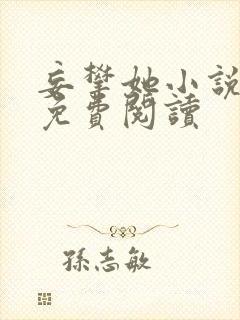 妄攀她小說
免費閱讀
孫志敏